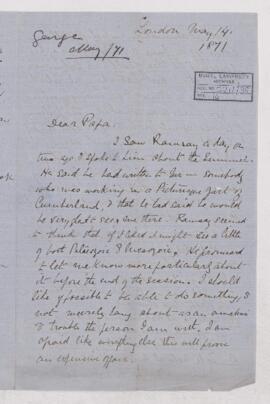 George
May/71
London May 14.
1871
McGILL UNIVERSITY
ARCHIVES
Dear Papa.
I saw Ramsay a day or
two ago & spoke to him about the Summer.
He said he had written to Mr — somebody
who was working in a Picturesque part of
Cumberland, & that he had said he would
be very glad to see me there. Ramsay seemed
to think that if I liked I might see a little
of both Paleozoic & Mesozoic. He promised
to let me know more particulars about
it before the end of the session. I should
like if possible to be able to do something, &
not merely hang about as an amateur
& trouble the person I am with. I am
afraid like everything else this will prove
an expensive affair.